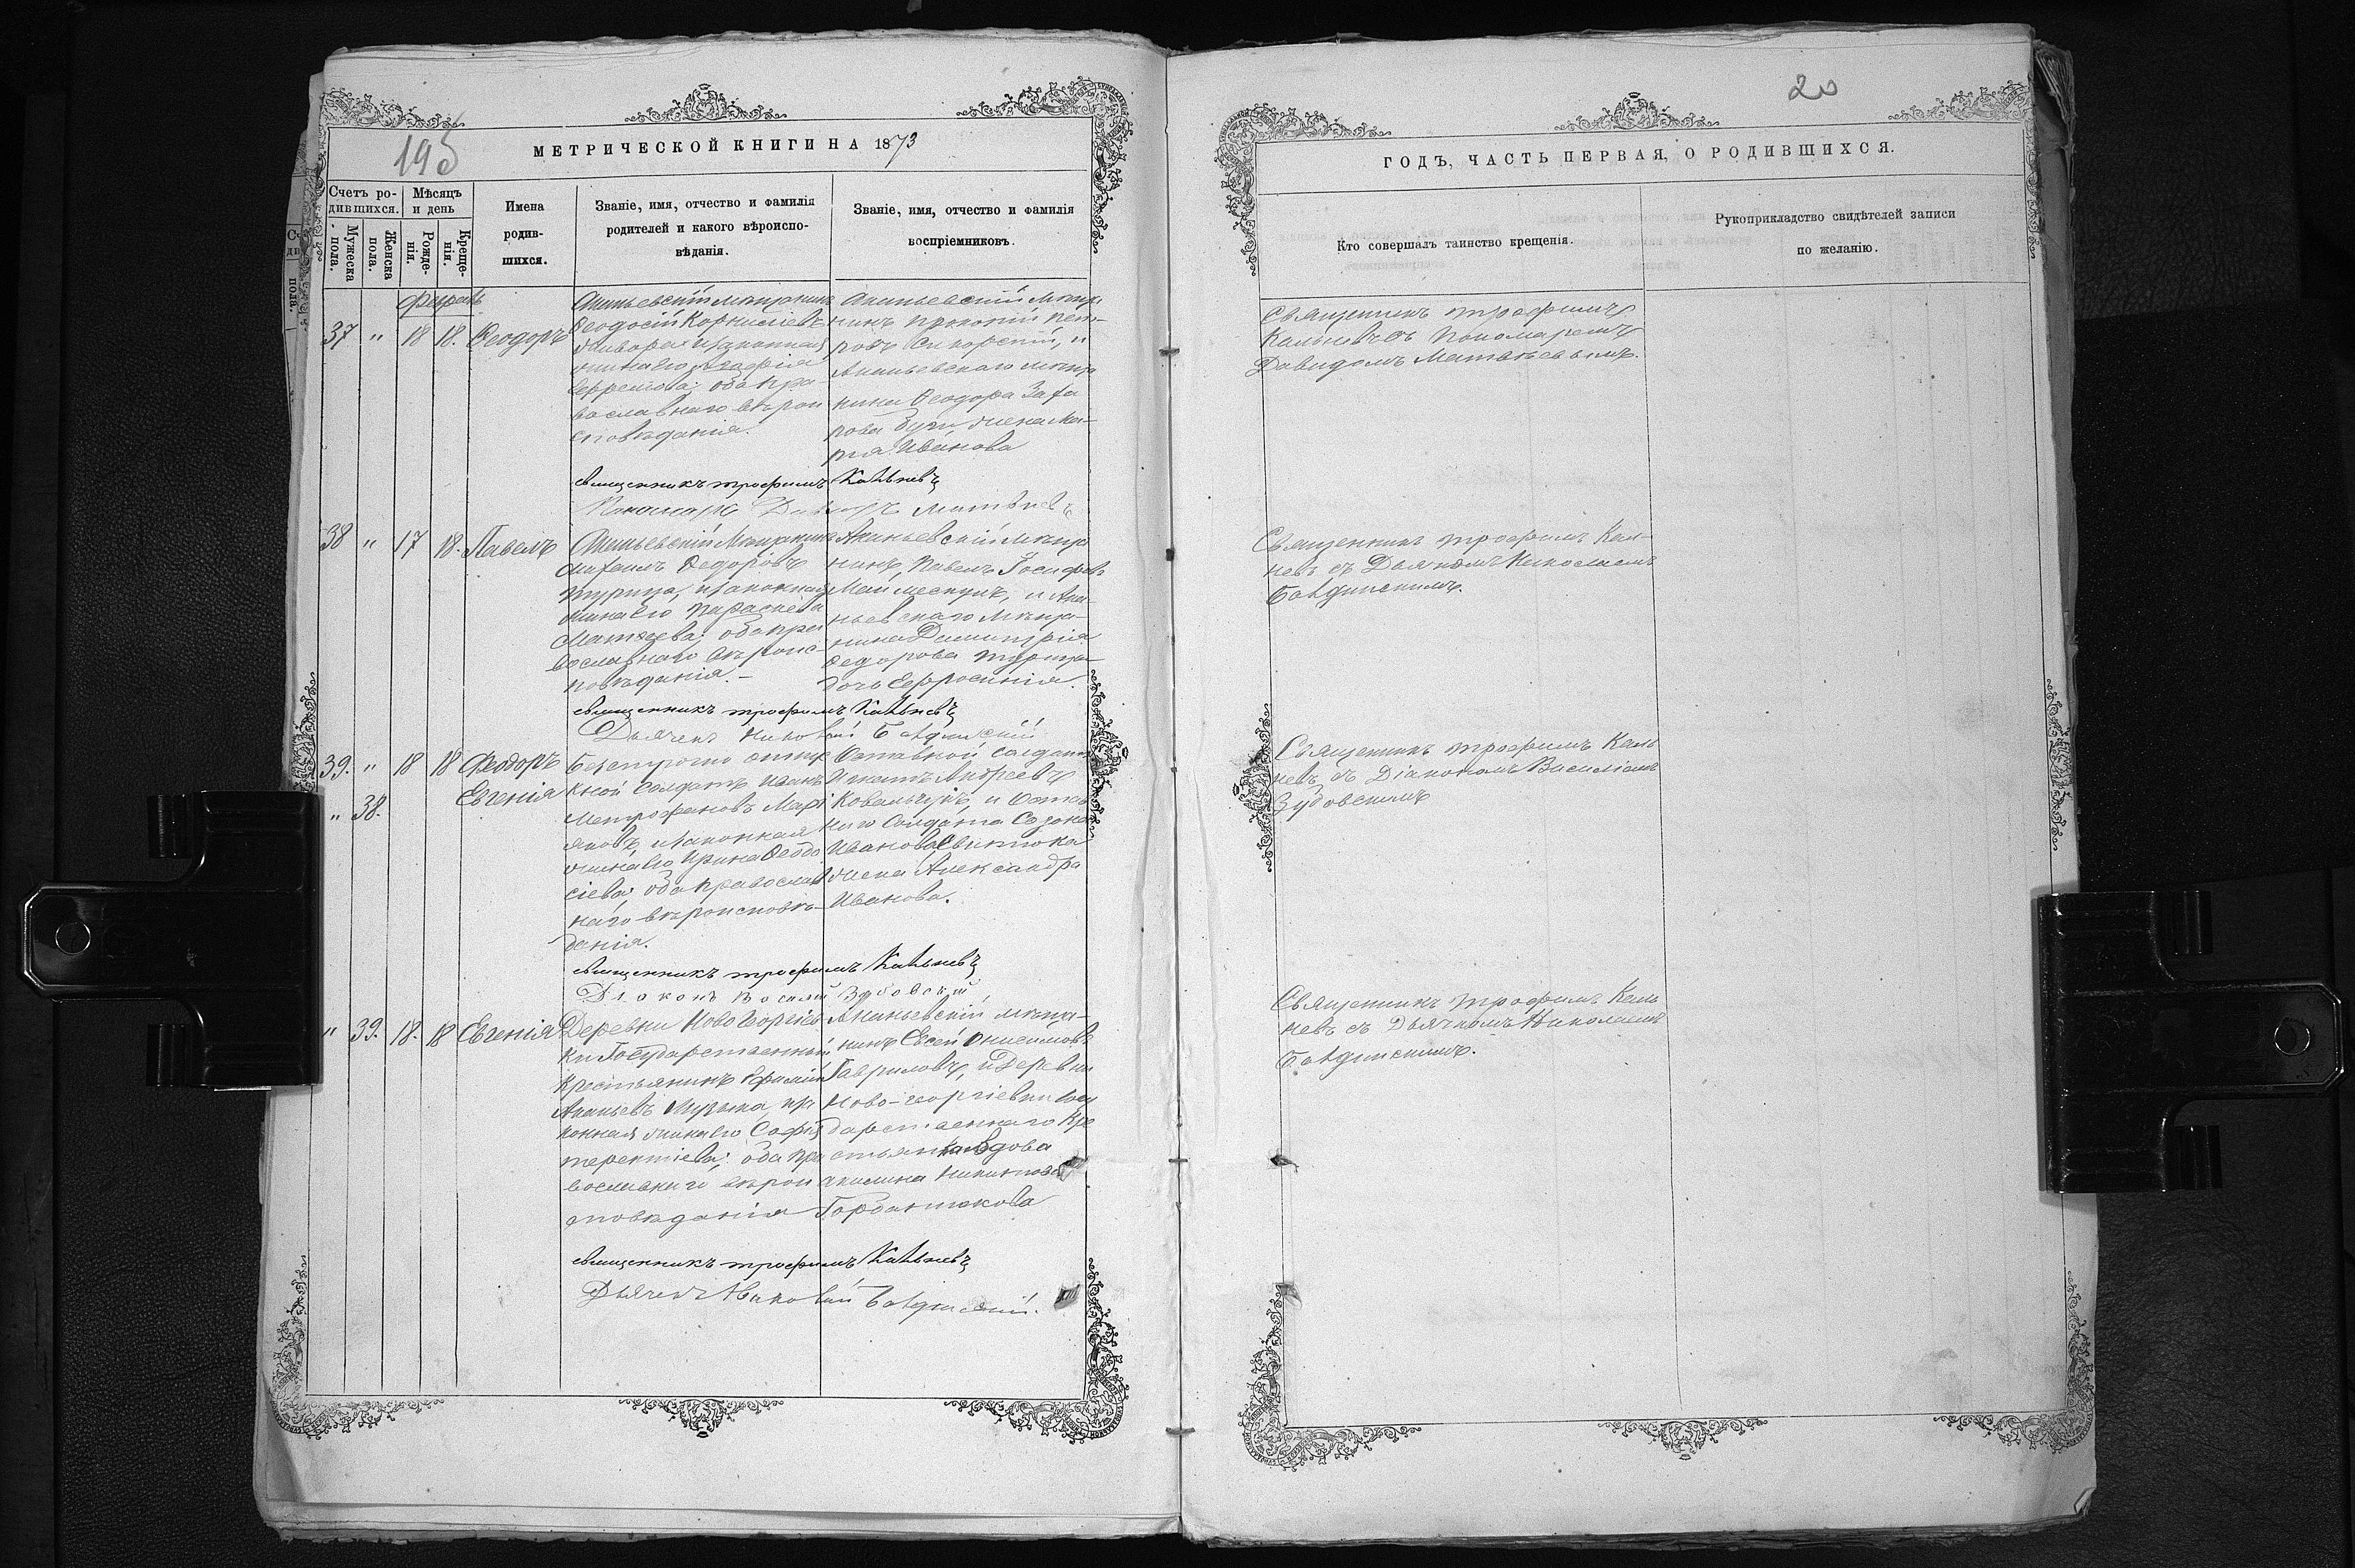 195
МЕТРИЧЕСКОЙ КНИГИ НА 1873
Счетъ ро-
дившихся.
Мѣсяцъ
и день
Мужеска
пола.
Женска
пола.
Рожде-
нія.
Креще-
нія.
Имена
родив-
шихся.
Званіе, имя, отчество и фамилія
родителей и какого вѣроиспо-
вѣданія.
Званіе, имя, отчество и фамилія
воспріемниковъ.
37 " 18 18. Ѳеодоръ
Ананьевскій мѣщанинъ
Ѳеодосій Корниліевъ
и законная
жина его
Ефремова; оба пра-
вославнаго вѣрои
сповѣданія.
Ананьевскій мѣща
нинъ Прокопій Пет-
ровъ Сикорскій, и
Ананьевскаго мѣща
нина Ѳеодора Заха
рова жена Ма-
рія Иванова
священникъ трофимъ Кальневъ
Пономарь Давидъ Матвѣевъ
38 " 17 18. Павелъ
Ананьевскій Мѣщанинъ
Михаилъ Ѳедоровъ
Турица, и законная
жина его Параскева
Матѳеева; оба пра
вославнаго вѣроис
повѣданія. -
Ананьевскій мѣща
нинъ, Павелъ Іосифовъ
и Ана-
ньевскаго мѣща-
нина Димитрія
Ѳедорова Турица
дочь Евфросинія.
священникъ трофимъ Кальневъ
Дьячекъ Николай
39. " 18 18 Ѳеодоръ
" 38. Евгенія
Безсрочно отпус
кной Солдатъ Иванъ
Митрофановъ Мар
яновъ, и законная
жина его Ирина Ѳеодо
сіева; оба православ
наго вѣроисповѣ-
данія.
Отставной солдатъ
Игнатъ Андреевъ
Ковальчукъ, и Отстав
наго Солдата Созона
Иванова
жена Александра
Иванова.
священникъ трофимъ Кальневъ
Діаконъ Василій Зубовскій
" 39. 18. 18 Евгенія
Деревни Ново Георгіев
ки Государственный
крестьянинъ Ефимій
Ананьевъ Музыка, и за
конная жина его Софія
Терентіева; оба пра
вославнаго вѣрои
сповѣданія
Ананьевскій мѣща-
нинъ Евсей Онисимовъ
Гавриловъ, и Деревни
Ново-Георгіевки Госу
дарственнаго Кре
стьянина Вдова
Акилина Никитова
Горбатюкова
священникъ трофимъ Кальневъ
Дьячекъ Николай
20
ГОДЪ, ЧАСТЬ ПЕРВАЯ, О РОДИВШИХСЯ.
Кто совершалъ таинство крещенія.
Рукоприкладство свидѣтелей записи
по желанію.
Священникъ трофимъ
Кальневъ съ Пономаремъ
Давидомъ Матвѣевымъ.
Священникъ трофимъ Каль-
невъ съ Дьячкомъ Николаемъ
Священникъ трофимъ Каль
невъ съ Діакономъ Василіемъ
Зубовскимъ
Священникъ трофимъ Каль
невъ съ Дьячкомъ Николаемъ